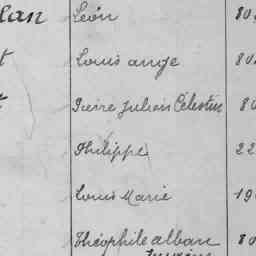 lan Léon 80
t Louis ange 80
t Pierre Julien Célestin 80
Philippe 22
Louis Marie 19
Théophile alban 80